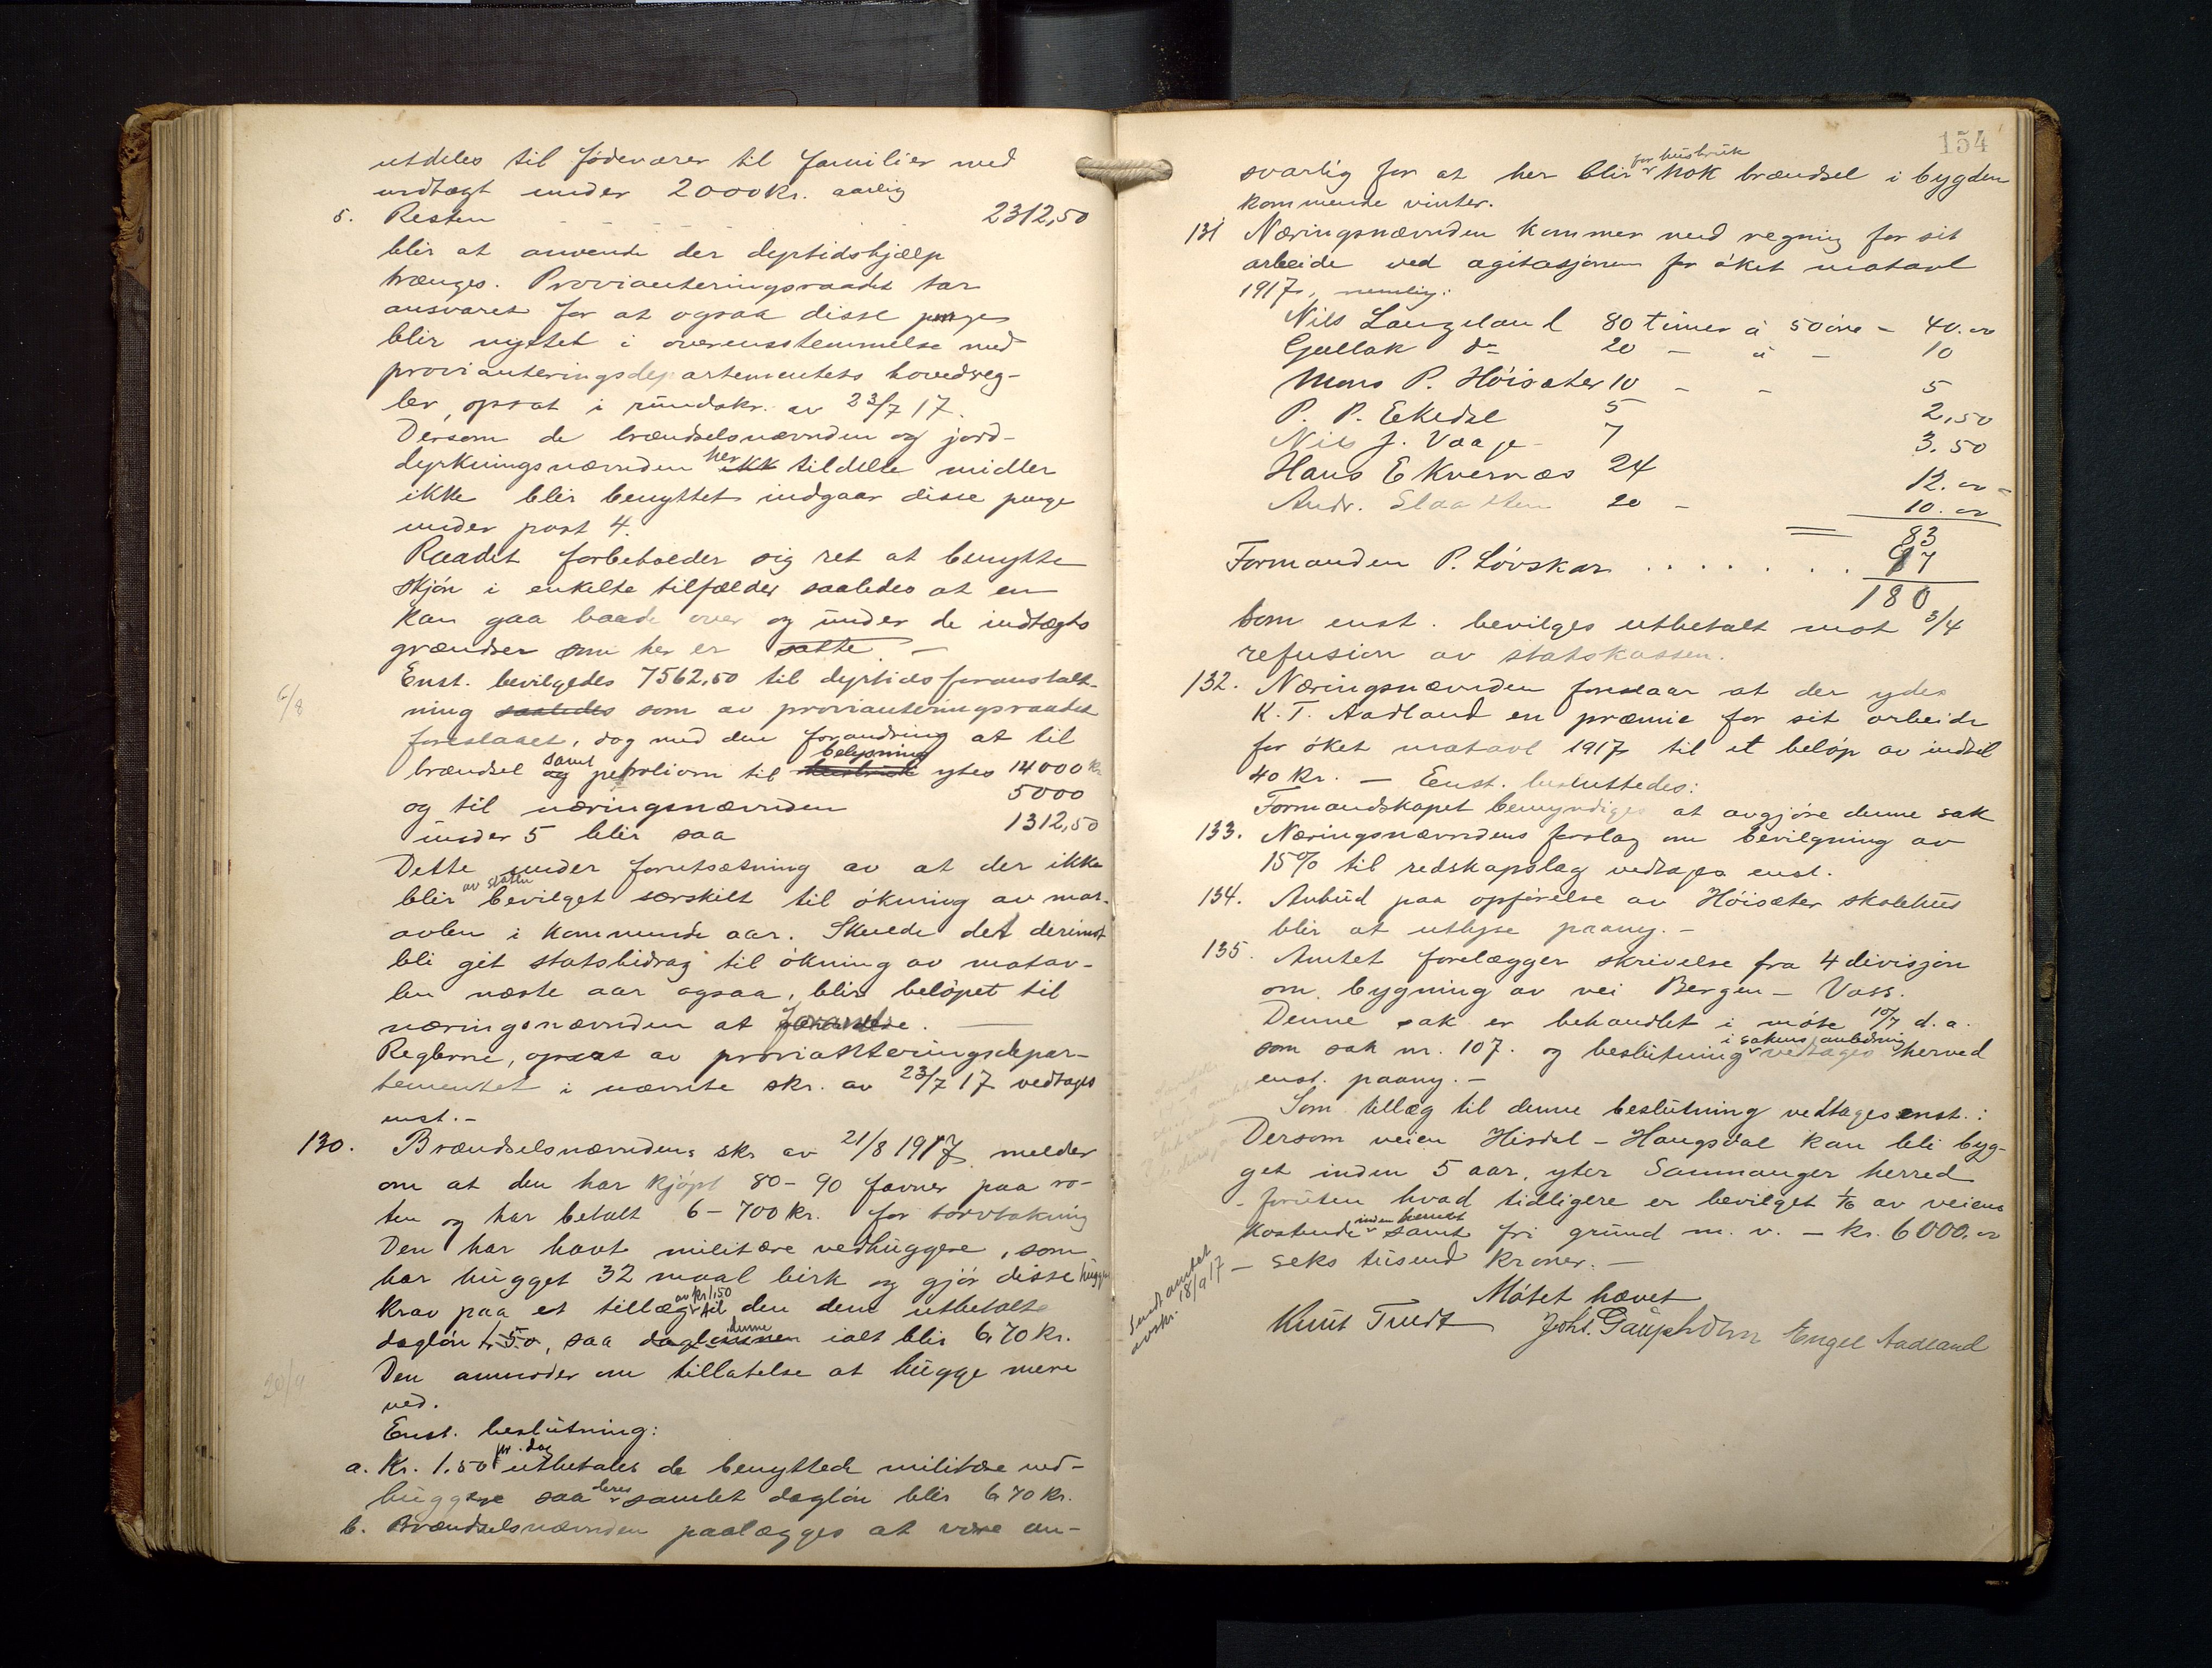 utdeles til fødevarer til familier med
indtægt under 2000 kr. aarlig
5. Resten 2312,50
blir at anvende der dyrtidshjælp
trænges. Provianteringsraadet tar
ansvaret for at ogsaa disse penge
blir nyttet i overensstemmelse med
provianteringsdepartementets hovedreg-
ler, opsat i rundskr. av 23/7 17.
Dersom de brændselsnævnden og jord-
dyrkningsnævnden her ikk tildelte midler
ikke blir benyttet indgaar disse penge
under post 4.
Raadet forbeholder sig ret at benytte
skjøn i enkelte tilfælder saaledes at en
kan gaa baade over og under de indtægts
grændser som her er satte. -
6/8
Enst. bevilgedes 7562,50 til dyrtidsforanstalt-
ning saaledes som av provianteringsraadet
foreslaaet, dog med den forandring at til
brændsel og samt petroliom til husbruk belysning ytes 14000 kr
og til næringsnævnden 5000
under 5 blir saa 1312,50
Dette under forutsætning av at der ikke
blir av staten bevilget særskilt til økning av mat-
avlen i kommende aar. Skulde det derimot
bli git statsbidrag til økning av matav-
len næste aar ogsaa, blir beløpet til
næringsnævnden at forandre. —
Reglerne, opsat av provianteringsdepar-
tementet i nævnte skr. av 23/7 17 vedtages
enst. -
130. Brændselsnævndens skr. av 21/8 1917 melder
om at den har kjøpt 80-90 favner paa ro-
ten og har betalt 6-700 kr. for torvtakning
Den har havt militære vedhuggere, som
har hugget 32 maal birk og gjør disse hugger
krav paa et tillæg av kr 1,50 til den dem utbetalte
dagløn 1.50, saa daglønnen denne ialt blir 6,70 kr.
20/9
Den anmoder om tillatelse at hugge mere
ved.
Enst. beslutning:
a. Kr. 1.50 pr. dag utbetales de benyttede militære ved-
huggere saa deres samlet dagløn blir 6,70 kr.
b. Brændselsnævnden paalægges at være an-
154
svarlig for at her blir for husbruk nok brændsel i bygden
kommende vinter.
131 Næringsnævnden kommer med regning for sit
arbeide ved agitasjonen for øket matavl
1917, nemlig:
Nils Langeland 80 timer à 50 øre - 40.00
Gullak do 20 - à - 10
Mons P. Høisæter 10 - - 5
P. P. Ekedal 5 2,50
Nils J. Vaage - 7 3.50
Hans E Kvernes 24 12.00 -
Andr. Slaatten 20 - 10.00
83
Formanden P. Løvskar . . . . . . . 97
180
Som enst. bevilges utbetalt mot 3/4
refusion av statskassen.
132. Næringsnævnden foreslaar at der ydes
K. T. Aadland en præmie for sit arbeide
for øket matavl 1917 til et beløp av indtil
40 kr. — Enst. besluttedes:
Formandskapet bemyndiges at avgjøre denne sak
133. Næringsnævndens forslag om bevilgning av
15% til redskapslag vedtages enst.
134. Anbud paa opførelse av Høisæter skolehus
blir at utlyse paany. -
135. Amtet forelægger skrivelse fra 4 divisjon
om bygning av vei Bergen - Voss.
Denne sak er behandlet i møte 10/7 d. a.
som sak nr. 107. og beslutning i sakens anledning vedtages herved
enst. paany. -
Som tillæg til denne beslutning vedtages enst.:
Dersom veien Hisdal - Haugsdal kan bli byg-
get inden 5 aar, yter Samnanger herred
- foruten hvad tidligere er bevilget 1/6 av veiens
kostende inden herredet samt fri grund m. v. - kr. 6000.00
— seks tusend kroner. —
Sendt amtet
avskr. 18/9 17
Møtet hævet
Knut Tveit Johs. Gaupholm Engel Aadland